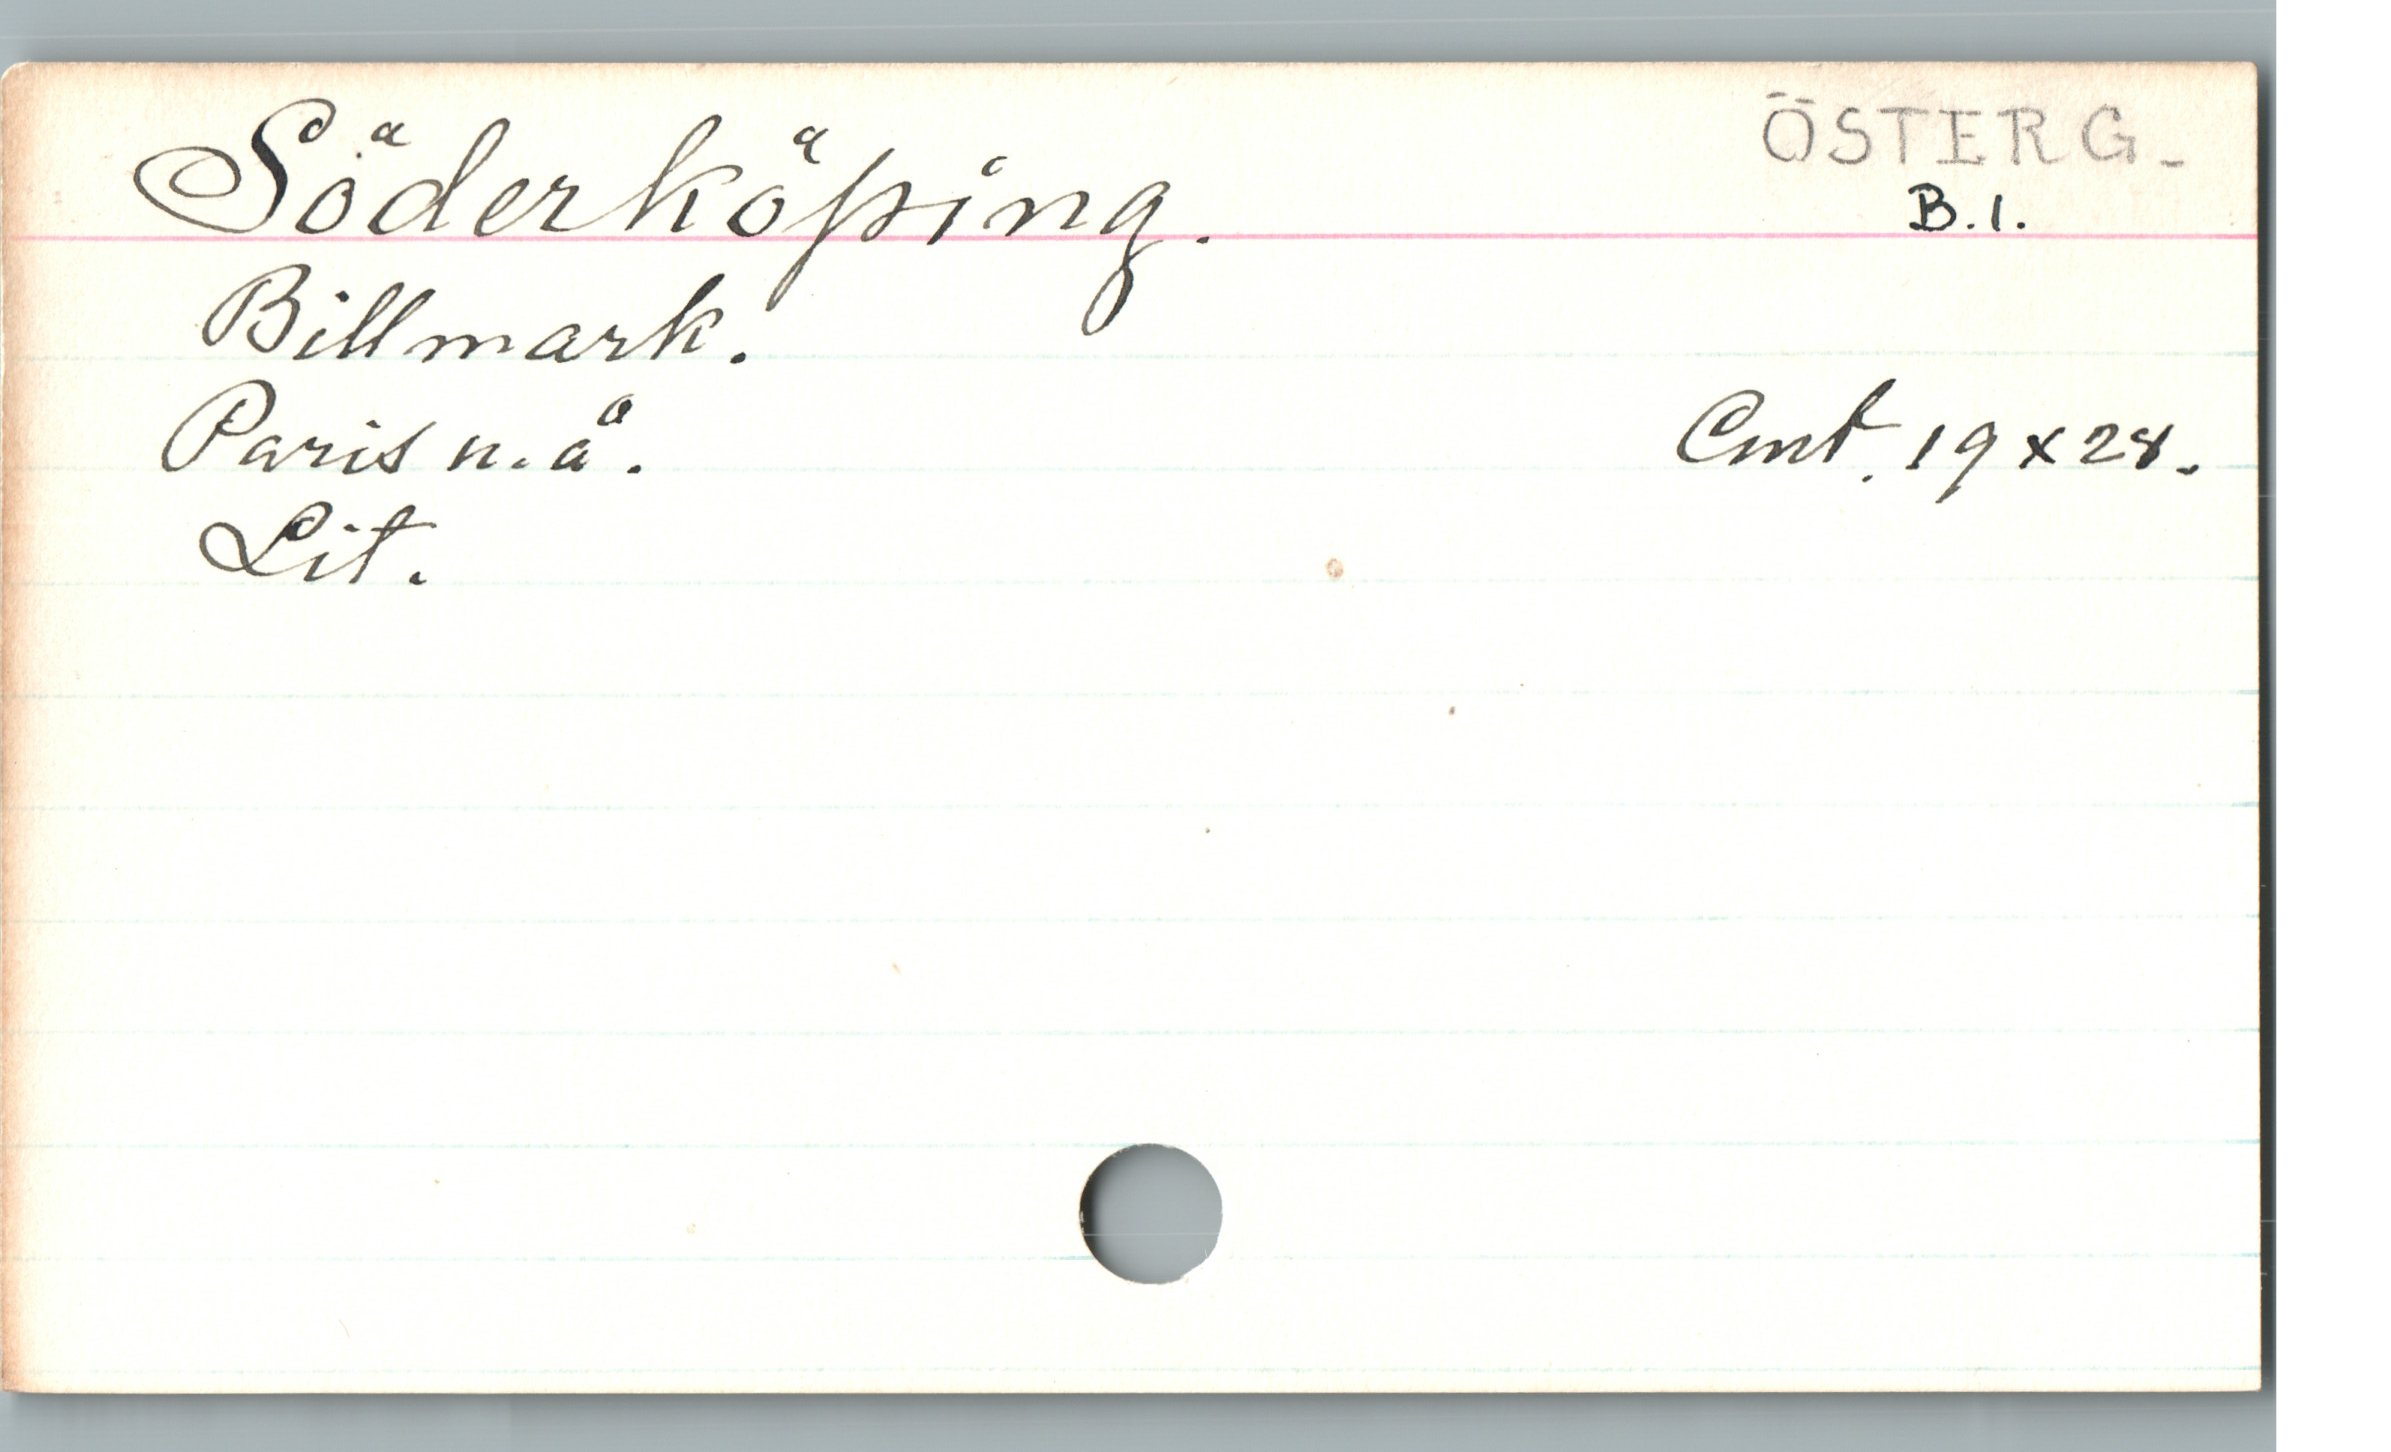 Söderköping.
ÖSTERG.
B.1.
Billmark.
Paris u.å.
Cmt. 19 x 28.
Lit.